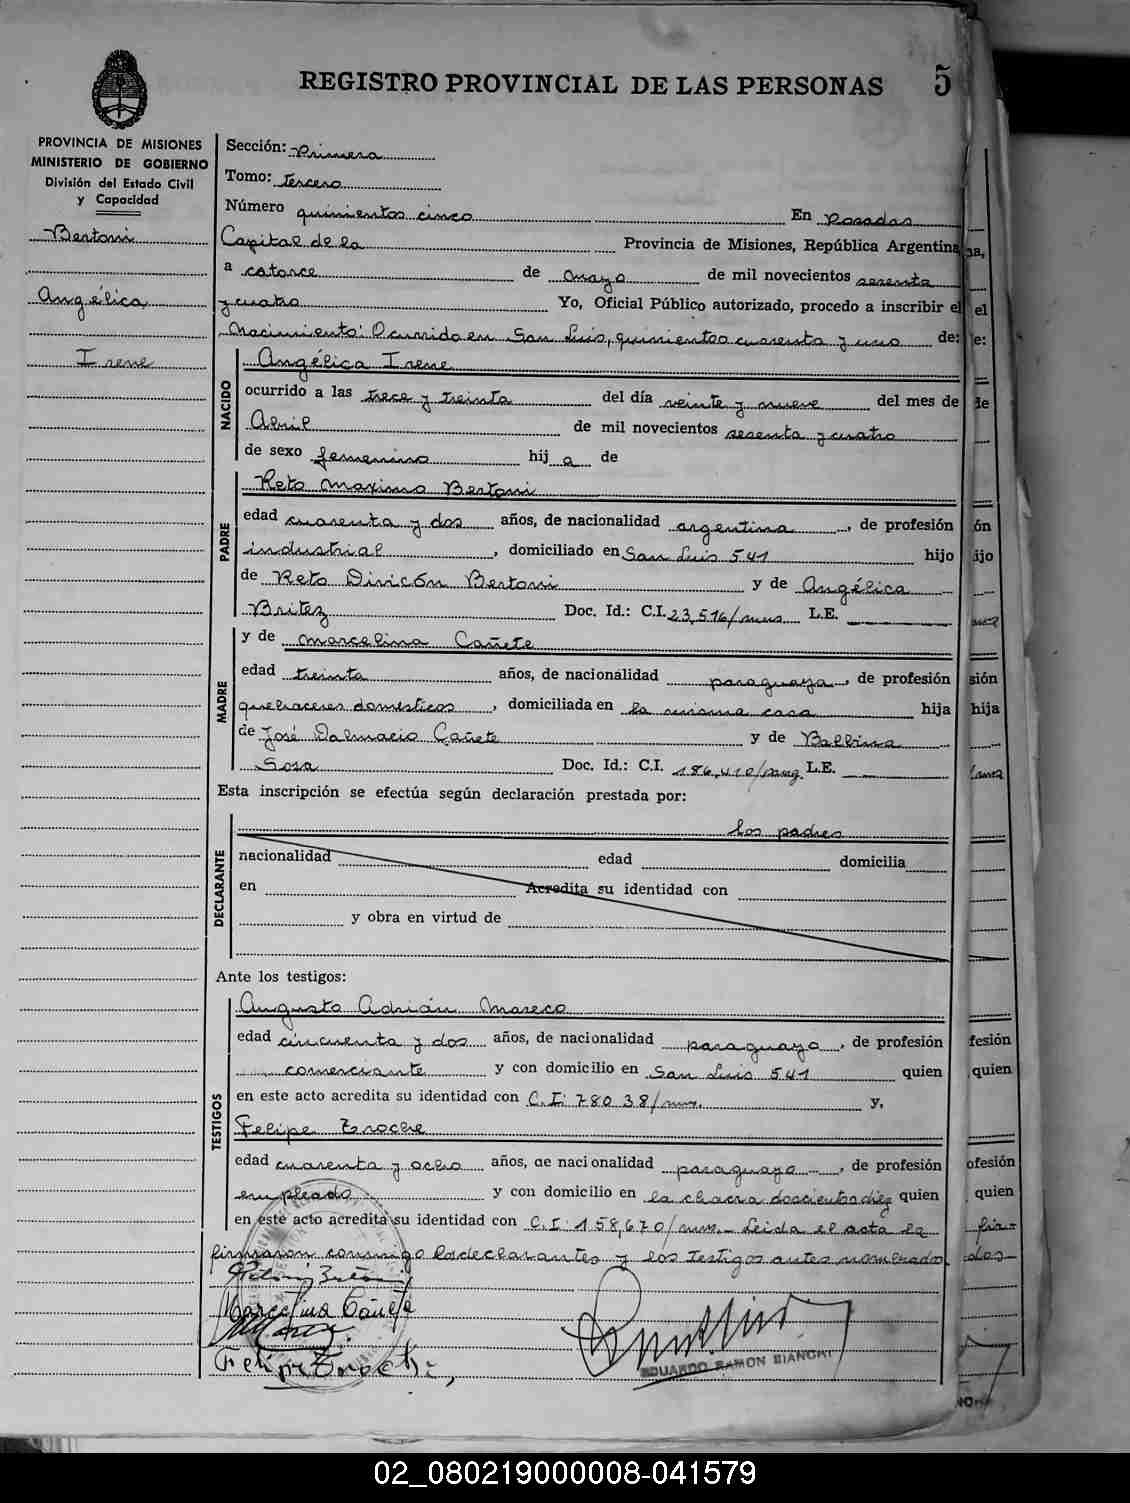 REGISTRO PROVINCIAL DE LAS PERSONAS 5
PROVINCIA DE MISIONES
MINISTERIO DE GOBIERNO
División del Estado Civil
y Capacidad
Bertoni
Angélica
Irene
Sección: Primera
Tomo: Tercero
Número quinientos cinco En Posadas
Capital de la Provincia de Misiones, República Argentina
a catorce de mayo de mil novecientos sesenta
y cuatro Yo, Oficial Público autorizado, procedo a inscribir el
Nacimiento: Ocurrido en San Luis, quinientos cuarenta y uno de:
NACIDO
Angélica Irene
ocurrido a las trece y treinta del día veinte y nueve del mes de
Abril de mil novecientos sesenta y cuatro
de sexo femenino hij a de
PADRE
Reto Maximo Bertoni
edad cuarenta y dos años, de nacionalidad argentina, de profesión
industrial, domiciliado en San Luis 541 hijo
de Reto Divicón Bertoni y de Angélica
Britez Doc. Id.: C.I. 23,516/mnes L.E.
MADRE
y de Marcelina Cañete
edad treinta años, de nacionalidad paraguaya, de profesión
quehaceres domésticos, domiciliada en la misma casa hija
de José Dalmacio Cañete y de Balbina
Sosa Doc. Id.: C.I. 186,410/ L.E.
Esta inscripción se efectúa según declaración prestada por:
DECLARANTE
los padres
nacionalidad edad domicilia
en Acredita su identidad con
y obra en virtud de
Ante los testigos:
TESTIGOS
Augusto Adrián Mareco
edad cincuenta y dos años, de nacionalidad paraguayo, de profesión
comerciante y con domicilio en San Luis 541 quien
en este acto acredita su identidad con C.I: 780 38/ y,
Felipe Troche
edad cuarenta y ocho años, de nacionalidad paraguayo, de profesión
empleado y con domicilio en la chacra doscientos diez quien
en este acto acredita su identidad con C.I: 158,670/ Leida el acta la
firmaron conmigo los declarantes y los testigos antes nombrados
Marcelina Cañete
Felipe Troche
EDUARDO RAMON BIANCHI
02_080219000008-041579